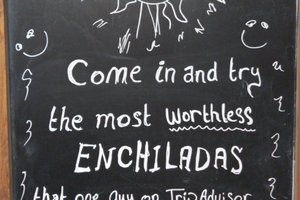 Come in and try
the most worthless
ENCHILADAS
that one guy on TripAdvisor